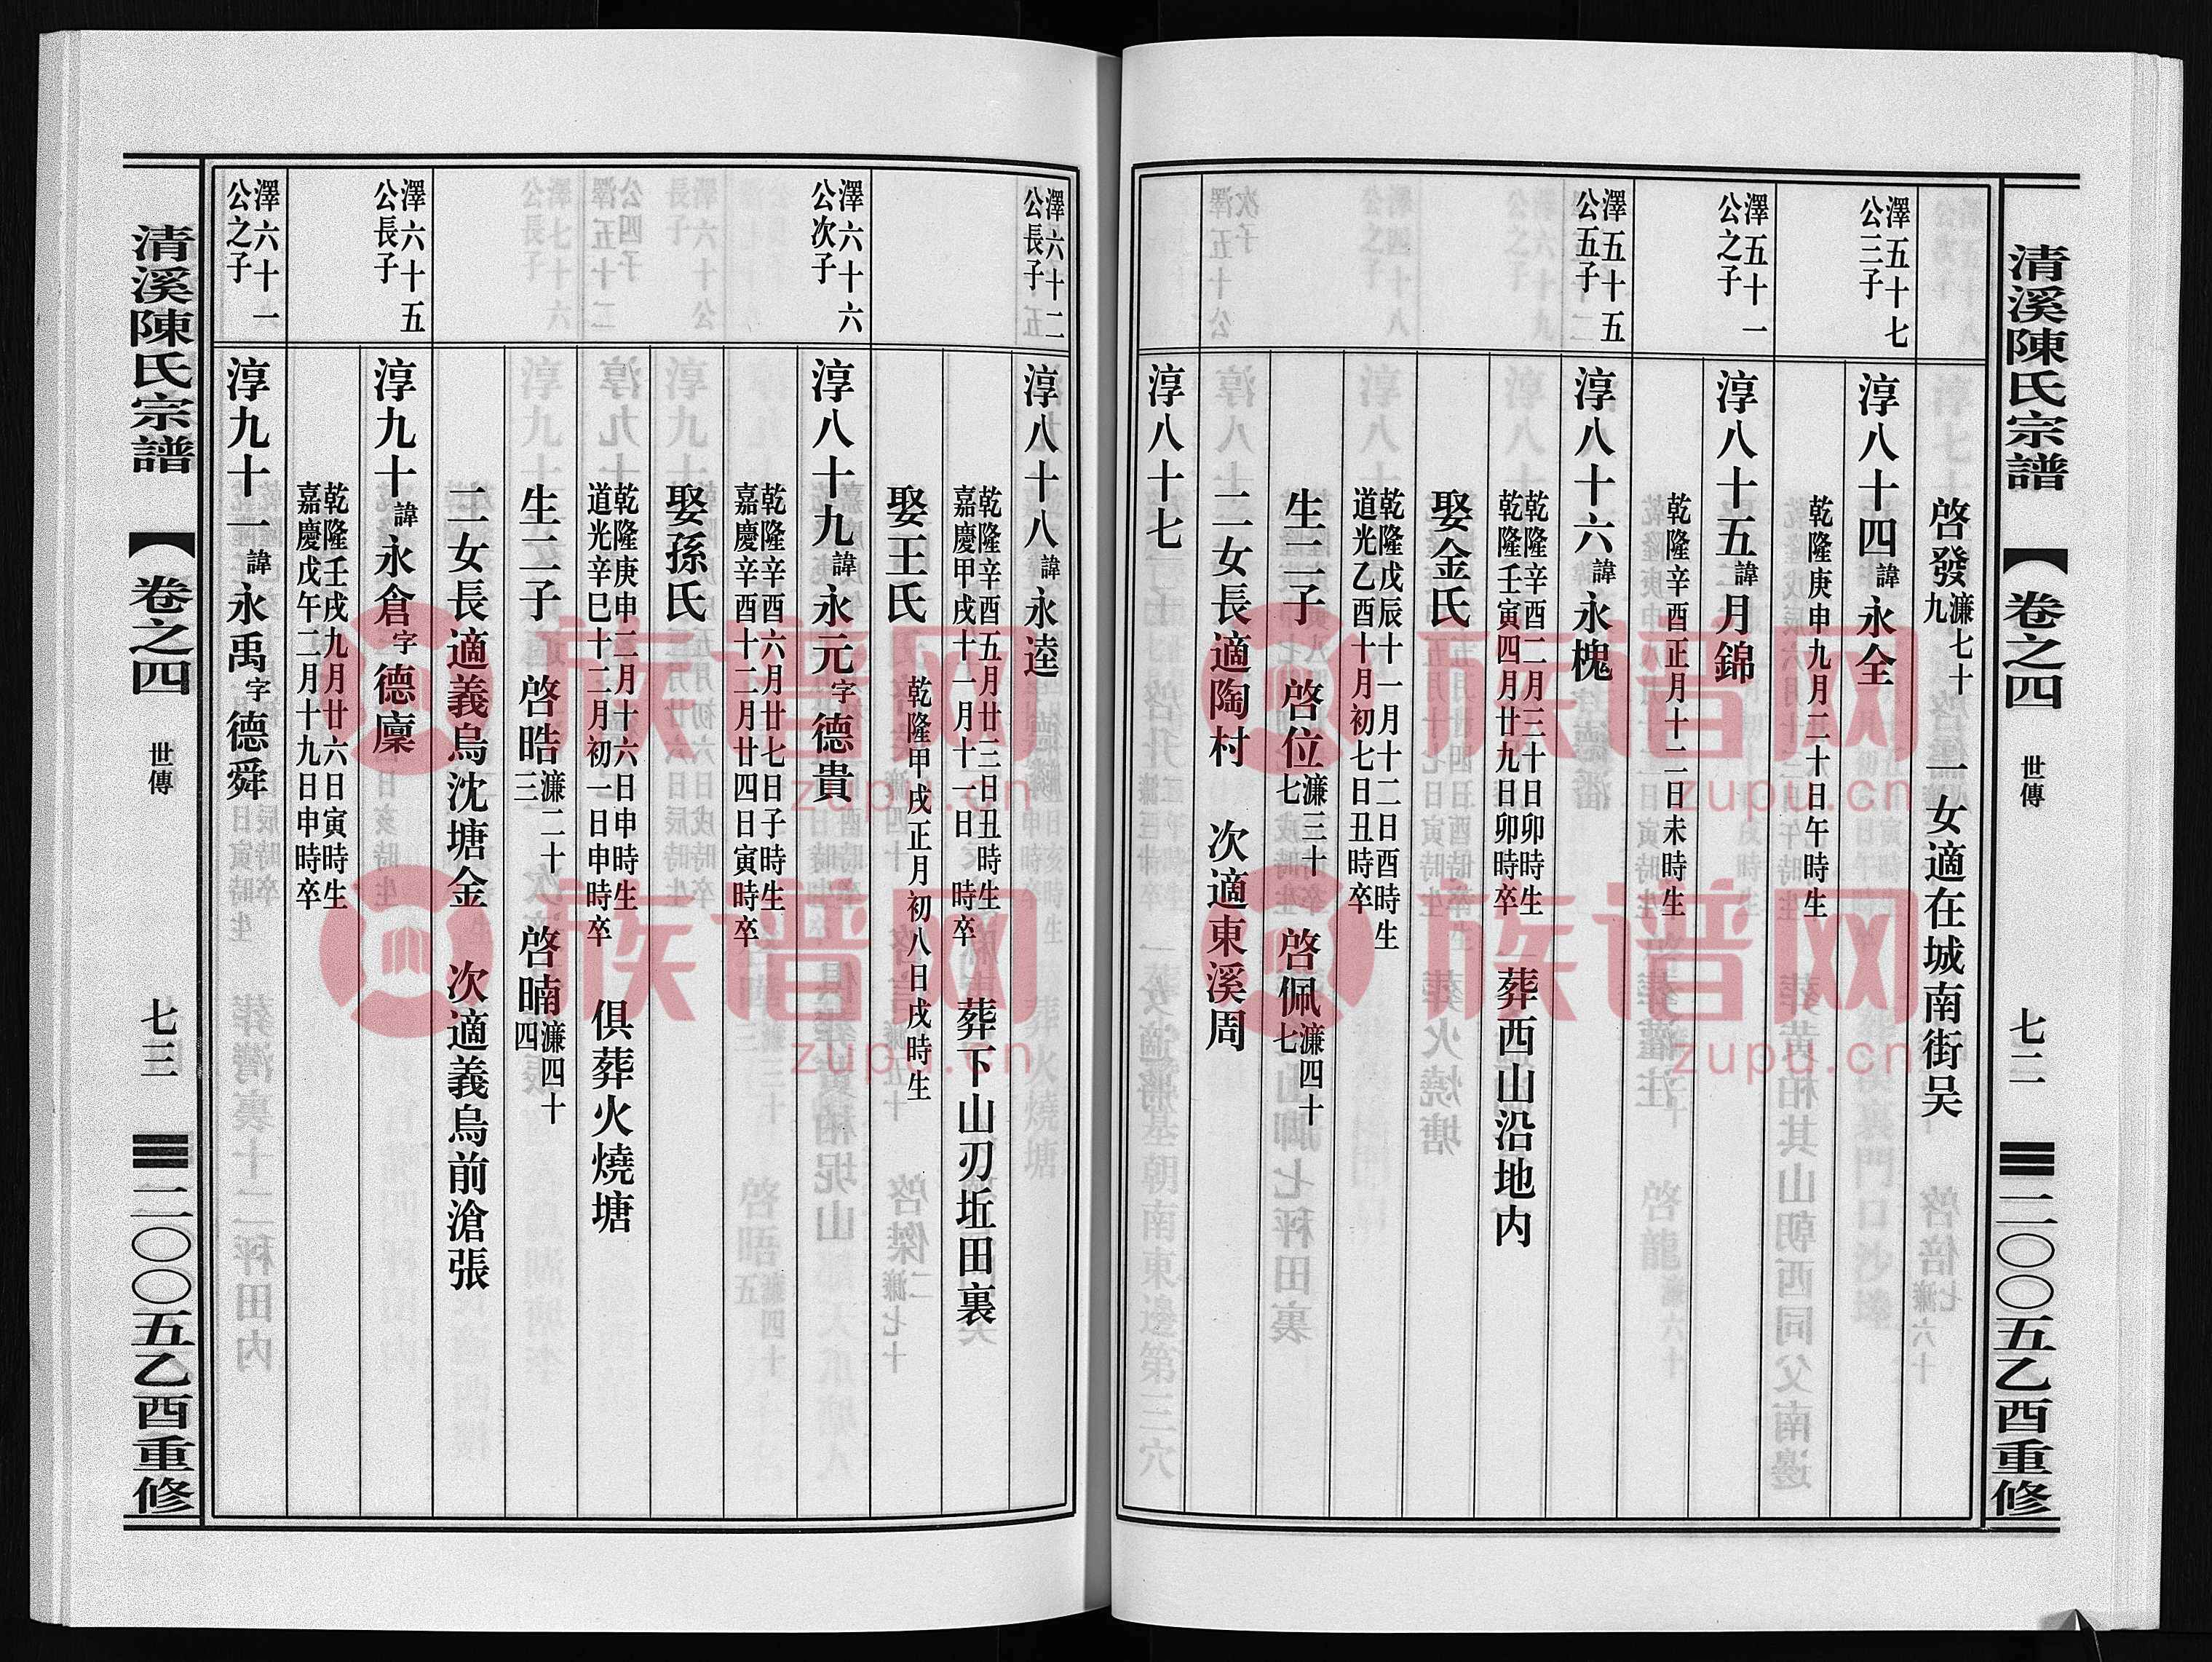 清溪陳氏宗譜
【卷之四
世傳
七二
二〇〇五乙酉重修
啓發濂七十九 一女適在城南街吴
澤五十七公三子
淳八十四諱永全
乾隆庚申九月二十日午時生
澤五十一公之子
淳八十五諱月錦
乾隆辛酉正月十二日未時生
澤五十五公五子
淳八十六諱永槐
乾隆辛酉二月三十日卯時生
乾隆壬寅四月廿九日卯時卒
葬西山沿地内
娶金氏
乾隆戊辰十一月十二日酉時生
道光乙酉十月初七日丑時卒
生二子 啓位濂三十七 啓佩濂四十七
二女長適陶村 次適東溪周
淳八十七
澤六十二公長子
淳八十八諱永逵
乾隆辛酉五月廿三日丑時生
嘉慶甲戌十一月十一日 時卒
葬下山刃坵田裏
娶王氏 乾隆甲戌正月初八日戌時生
澤六十六公次子
淳八十九諱永元字德貴
乾隆辛酉六月廿七日子時生
嘉慶辛酉十二月廿四日寅時卒
娶孫氏
乾隆庚申二月十六日申時生
道光辛巳十二月初一日申時卒
俱葬火燒塘
生二子 啓晧濂二十三 啓暔濂四十四
二女長適義烏沈塘金 次適義烏前滄張
澤六十五公長子
淳九十諱永倉字德廩
乾隆壬戌九月廿六日寅時生
嘉慶戊午二月十九日申時卒
澤六十一公之子
淳九十一諱永禹字德舜
清溪陳氏宗譜
【卷之四
世傳
七三
二〇〇五乙酉重修
族谱网
zupu.cn
族谱网
zupu.cn
族谱网
zupu.cn
族谱网
zupu.cn